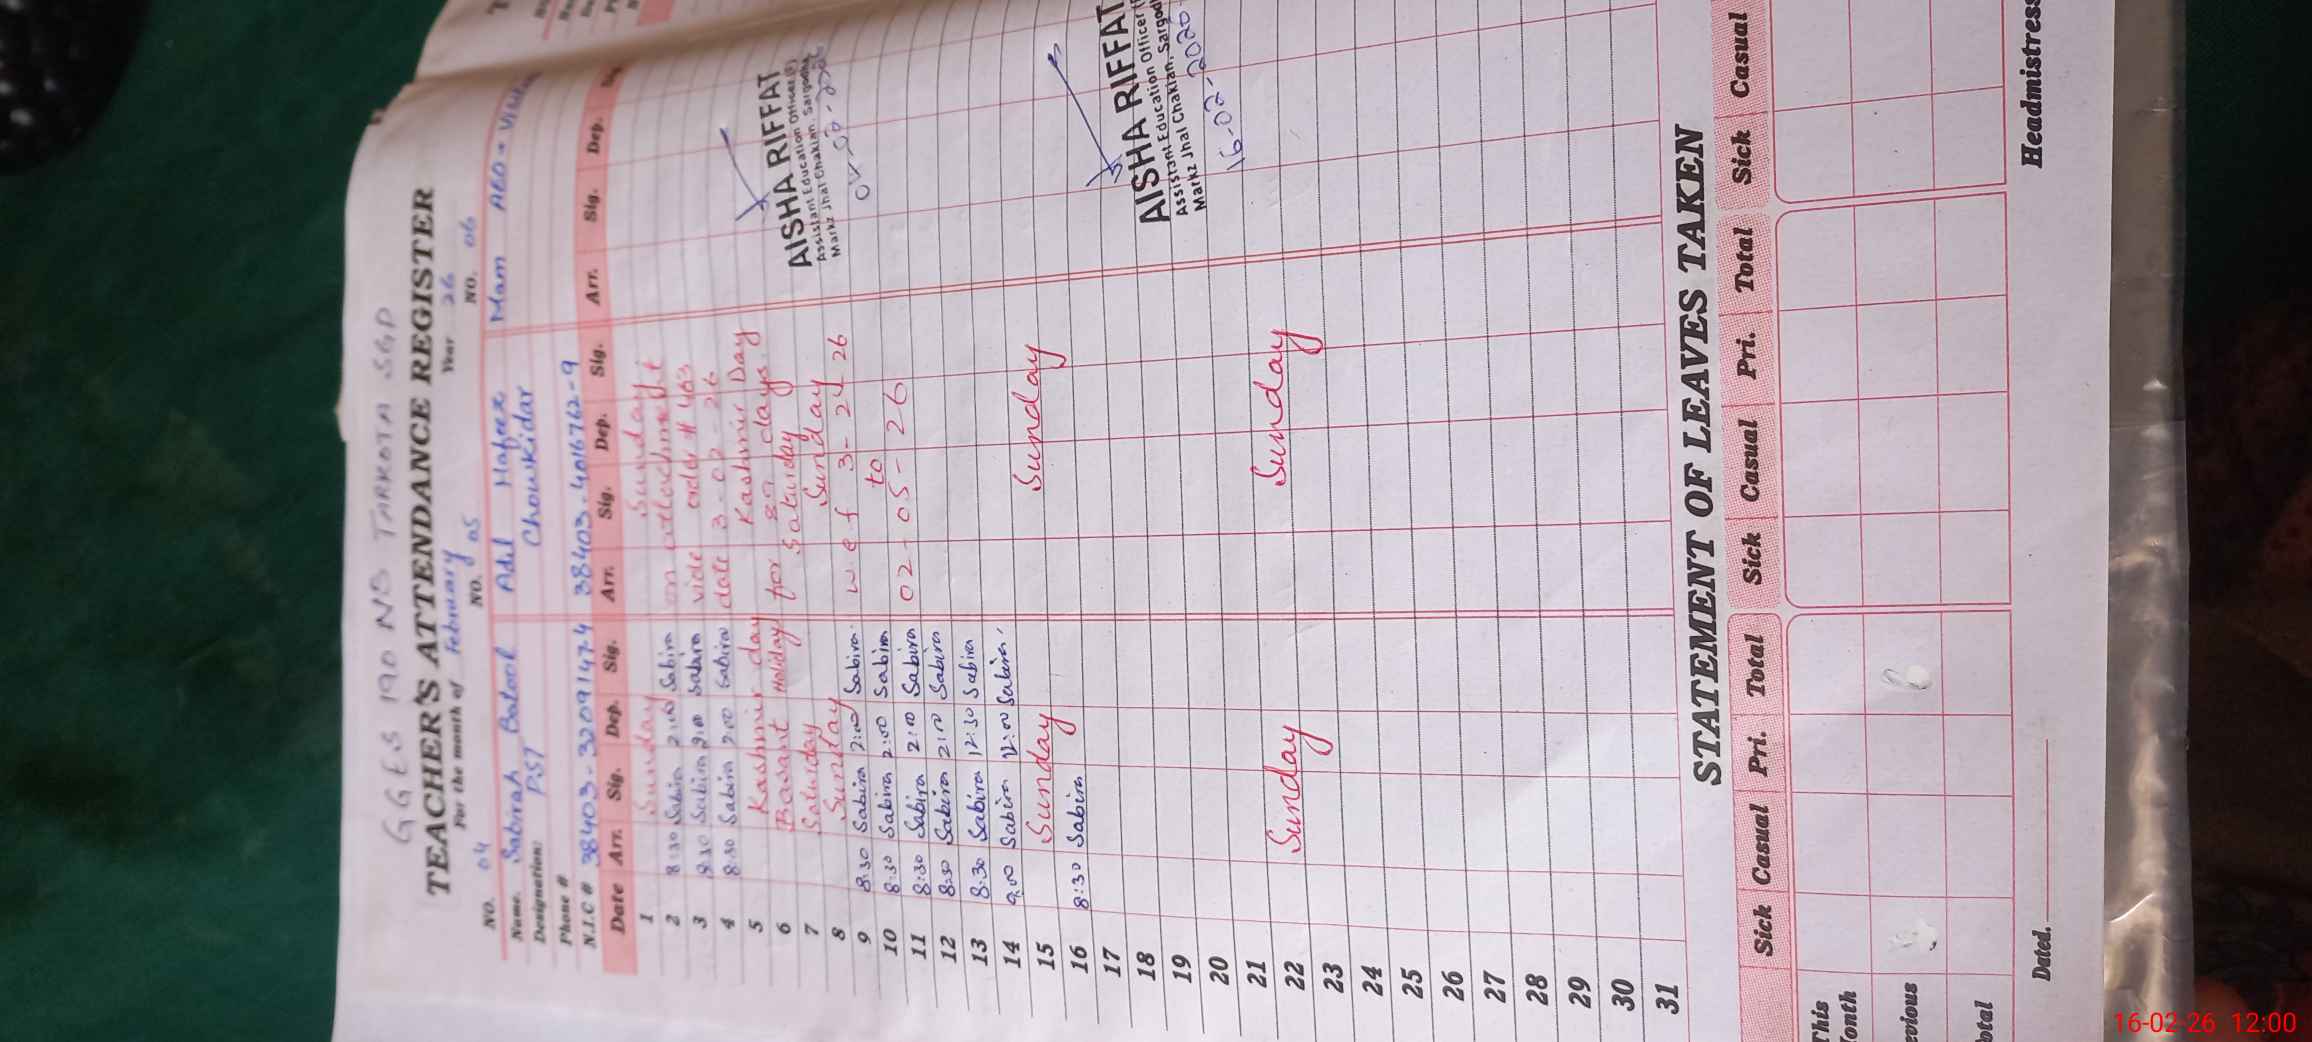 GGES 190 NB TARKOTA SGD
TEACHER'S ATTENDANCE REGISTER
For the month of February Year 26
NO. 04 NO. 05 NO. 06
Name. Sabirah Batool Adil Hafeez Mam AEO - Visit
Designation: PST Chowkidar
Phone #
N.I.C # 38403-3209147-4 38403-4016762-9
Date Arr. Sig. Dep. Sig. Arr. Sig. Dep. Sig. Arr. Sig. Dep.
1 Sunday Sunday
2 8:30 Sabira 2:00 Sabira on attachment
3 8:30 Sabira 2:00 Sabira vide order # 463
4 8:30 Sabira 2:00 Sabira date 3-02-26
5 Kashmir day Kashmir Day
6 Basant Holiday for 89 days
7 Saturday Saturday
8 Sunday Sunday
9 8:30 Sabira 2:00 Sabira w e f 3-2-26
10 8:30 Sabira 2:00 Sabira to
11 8:30 Sabira 2:00 Sabira 02-05-26
12 8:30 Sabira 2:00 Sabira
13 8:30 Sabira 12:30 Sabira
14 9:00 Sabira 12:00 Sabira
15 Sunday Sunday
16 8:30 Sabira
17
18
19
20
21
22 Sunday Sunday
23
24
25
26
27
28
29
30
31
AISHA RIFFAT
Assistant Education Officer (F)
Markz Jhal Chakian, Sargodha
AISHA RIFFAT
Assistant Education Officer
Markz Jhal Chakian, Sargod
16-02-2020
STATEMENT OF LEAVES TAKEN
Sick Casual Pri. Total Sick Casual Pri. Total Sick Casual
This
onth
evious
otal
Dated. Headmistress
16-02-26 12:00